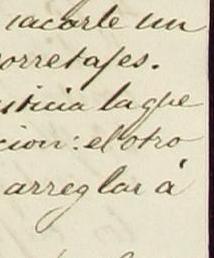 sacarle un
corretajes.
usticia la que
cion: el otro
arreglar á